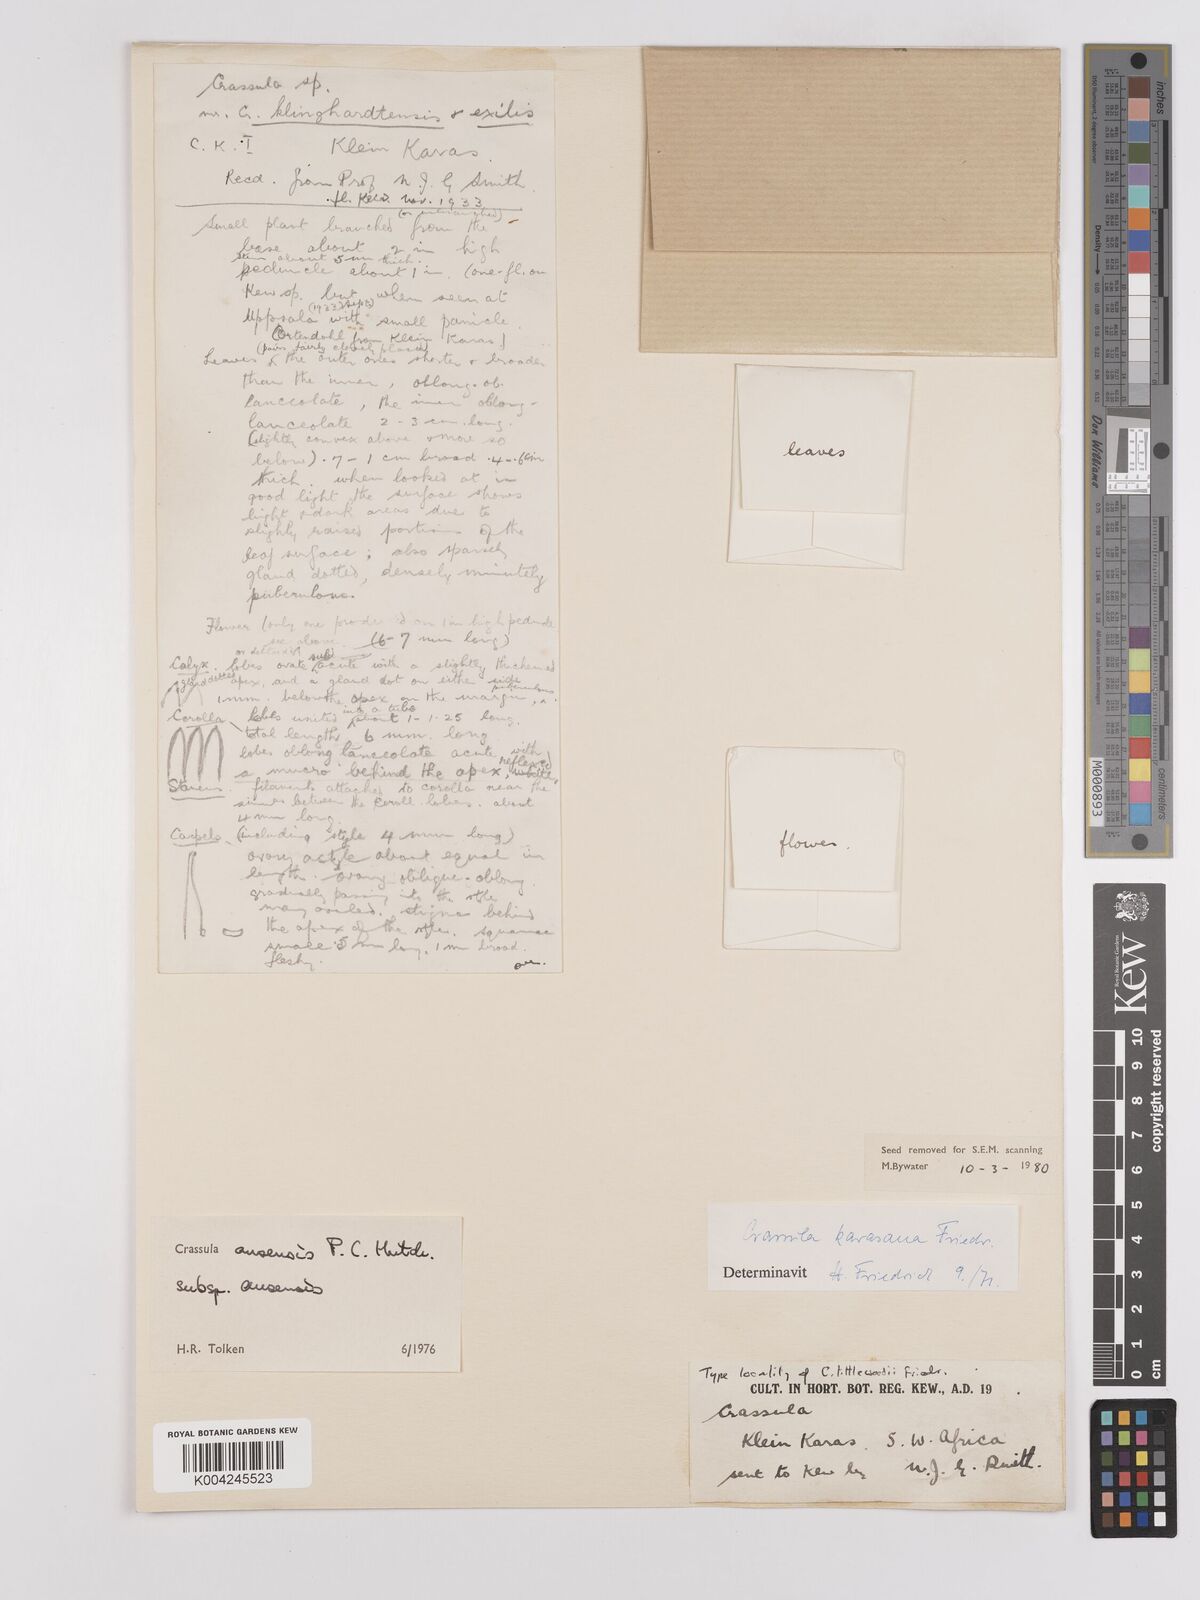 Crassula sp.
nr. C. klinghardtensis & exilis
C. K. I Klein Karas.
Recd. from Prof N. J. G Smith.
fl. Kew. Nov. 1933
Small plant branched from the
base about 2 in high
stem about 5 mm thick.
peduncle about 1 in. (one-fl. on
Kew sp. but when seen at
(1933 Sept)
Uppsala with small panicle.
from Klein Karas)
(pairs fairly closely placed)
Leaves the outer ones shorter & broader
than the inner, oblong-ob-
lanceolate, the inner oblong-
lanceolate 2-3 cm. long.
(slightly convex above & more so
below) .7-1 cm broad .4-.6 cm
thick. when looked at in
good light the surface shows
light & dark areas due to
slightly raised portions of the
leaf surface; also sparsely
gland dotted, densely minutely
puberulous.
Flower (only one on 1 in high peduncle
see above. (6-7 mm long)
Calyx. lobes ovate sub acute with a slightly thickened
apex, and a gland dot on either side
1 mm. below the apex on the margin,
Corolla lobes united into a tube about 1-1.25 long.
total length 6 mm. long
lobes oblong lanceolate acute with
a mucro behind the apex, reflexed, white.
Stamens. filaments attached to corolla near the
sinus between the coroll lobes. about
4 mm long.
Carpels (including style 4 mm long)
ovary & style about equal in
length. Ovary oblique-oblong
gradually passing into the style
many ovuled. stigma behind
the apex of the style. squamae
small .5 mm long, 1 mm broad.
fleshy.
over.
leaves
flower.
Seed removed for S.E.M. scanning
M.Bywater 10-3-1980
Crassula karasana Friedr.
Determinavit H. Friedrich 9./71.
Crassula ausensis P. C. Hutch.
subsp. ausensis
H.R. Tolken 6/1976
Type locality of C. littlewoodii Friedr.
CULT. IN HORT. BOT. REG. KEW., A.D. 19 .
Crassula
Klein Karas. S. W. Africa
sent to Kew by N. J. G. Smith.
ROYAL BOTANIC GARDENS KEW
K004245523
inches
centimetres
Density
Don Williams
M000893
Royal Botanic Gardens
Kew
copyright reserved
0 1 2 3 4 5 6 7 8 9 10
cm